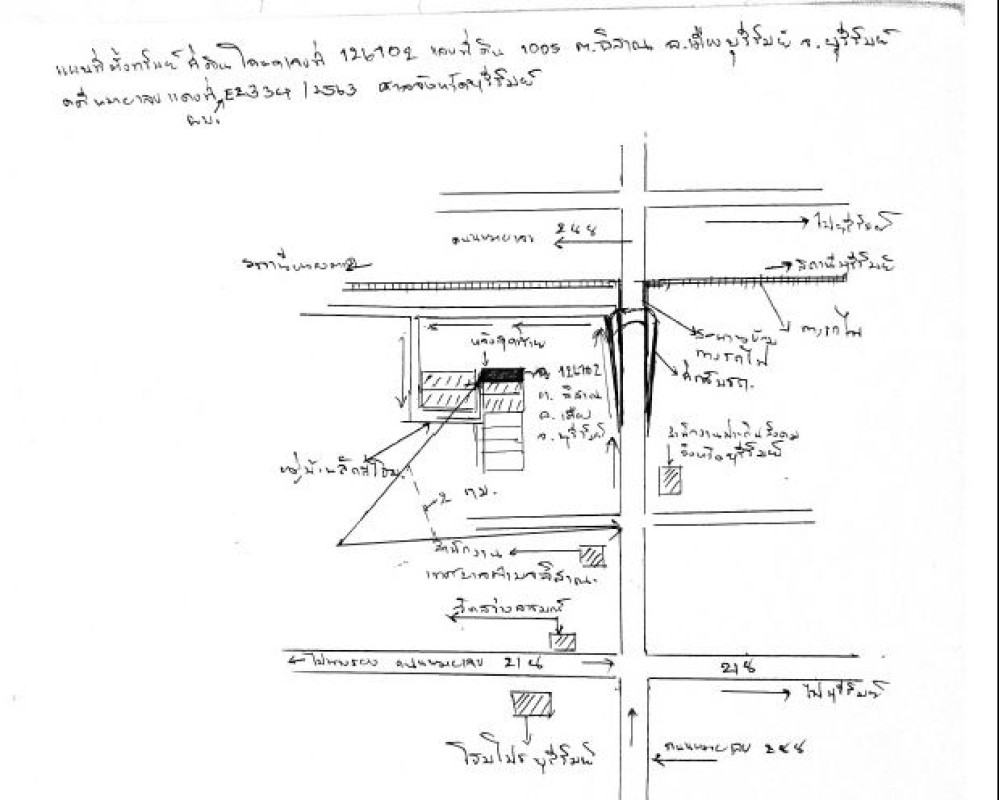 แผนที่ตั้งทรัพย์ ที่ดินโฉนดเลขที่ 126702 เลขที่ดิน 1005 ต.อิสาณ อ.เมืองบุรีรัมย์ จ.บุรีรัมย์
คดีหมายเลขแดงที่ ผบ.E2334/2563 ศาลจังหวัดบุรีรัมย์
ไปบุรีรัมย์
ถนนหมายเลข 288
สถานีบุรีรัมย์
ทางรถไฟ
สะพานข้าม
ทางรถไฟ
ที่กลับรถ
หลังสุดท้าย
ฉ. 126702
ต. อิสาณ
อ. เมือง
จ. บุรีรัมย์
สำนักงานประกันสังคม
จังหวัดบุรีรัมย์
2 กม.
สำนักงาน
เทศบาลตำบลอิสาณ
วัดสว่าง
ไปนางรอง ถนนหมายเลข 218
218
ไปบุรีรัมย์
ถนนหมายเลข 288
โฮมโปร บุรีรัมย์